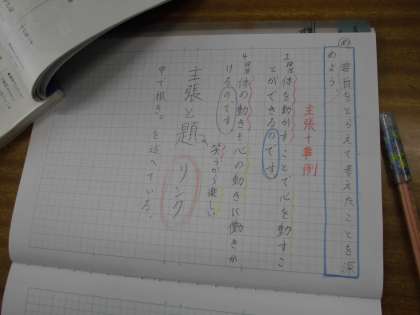 め
筆者をとらえて考えたことを深
めよう。
主張+事例
2段 体を動かすことで心を動かすこ
とができるのです
4段 体の動きも心の動きに働きか
けるのです
笑うから楽しい
主張と題
リンク
中で
を述べている。